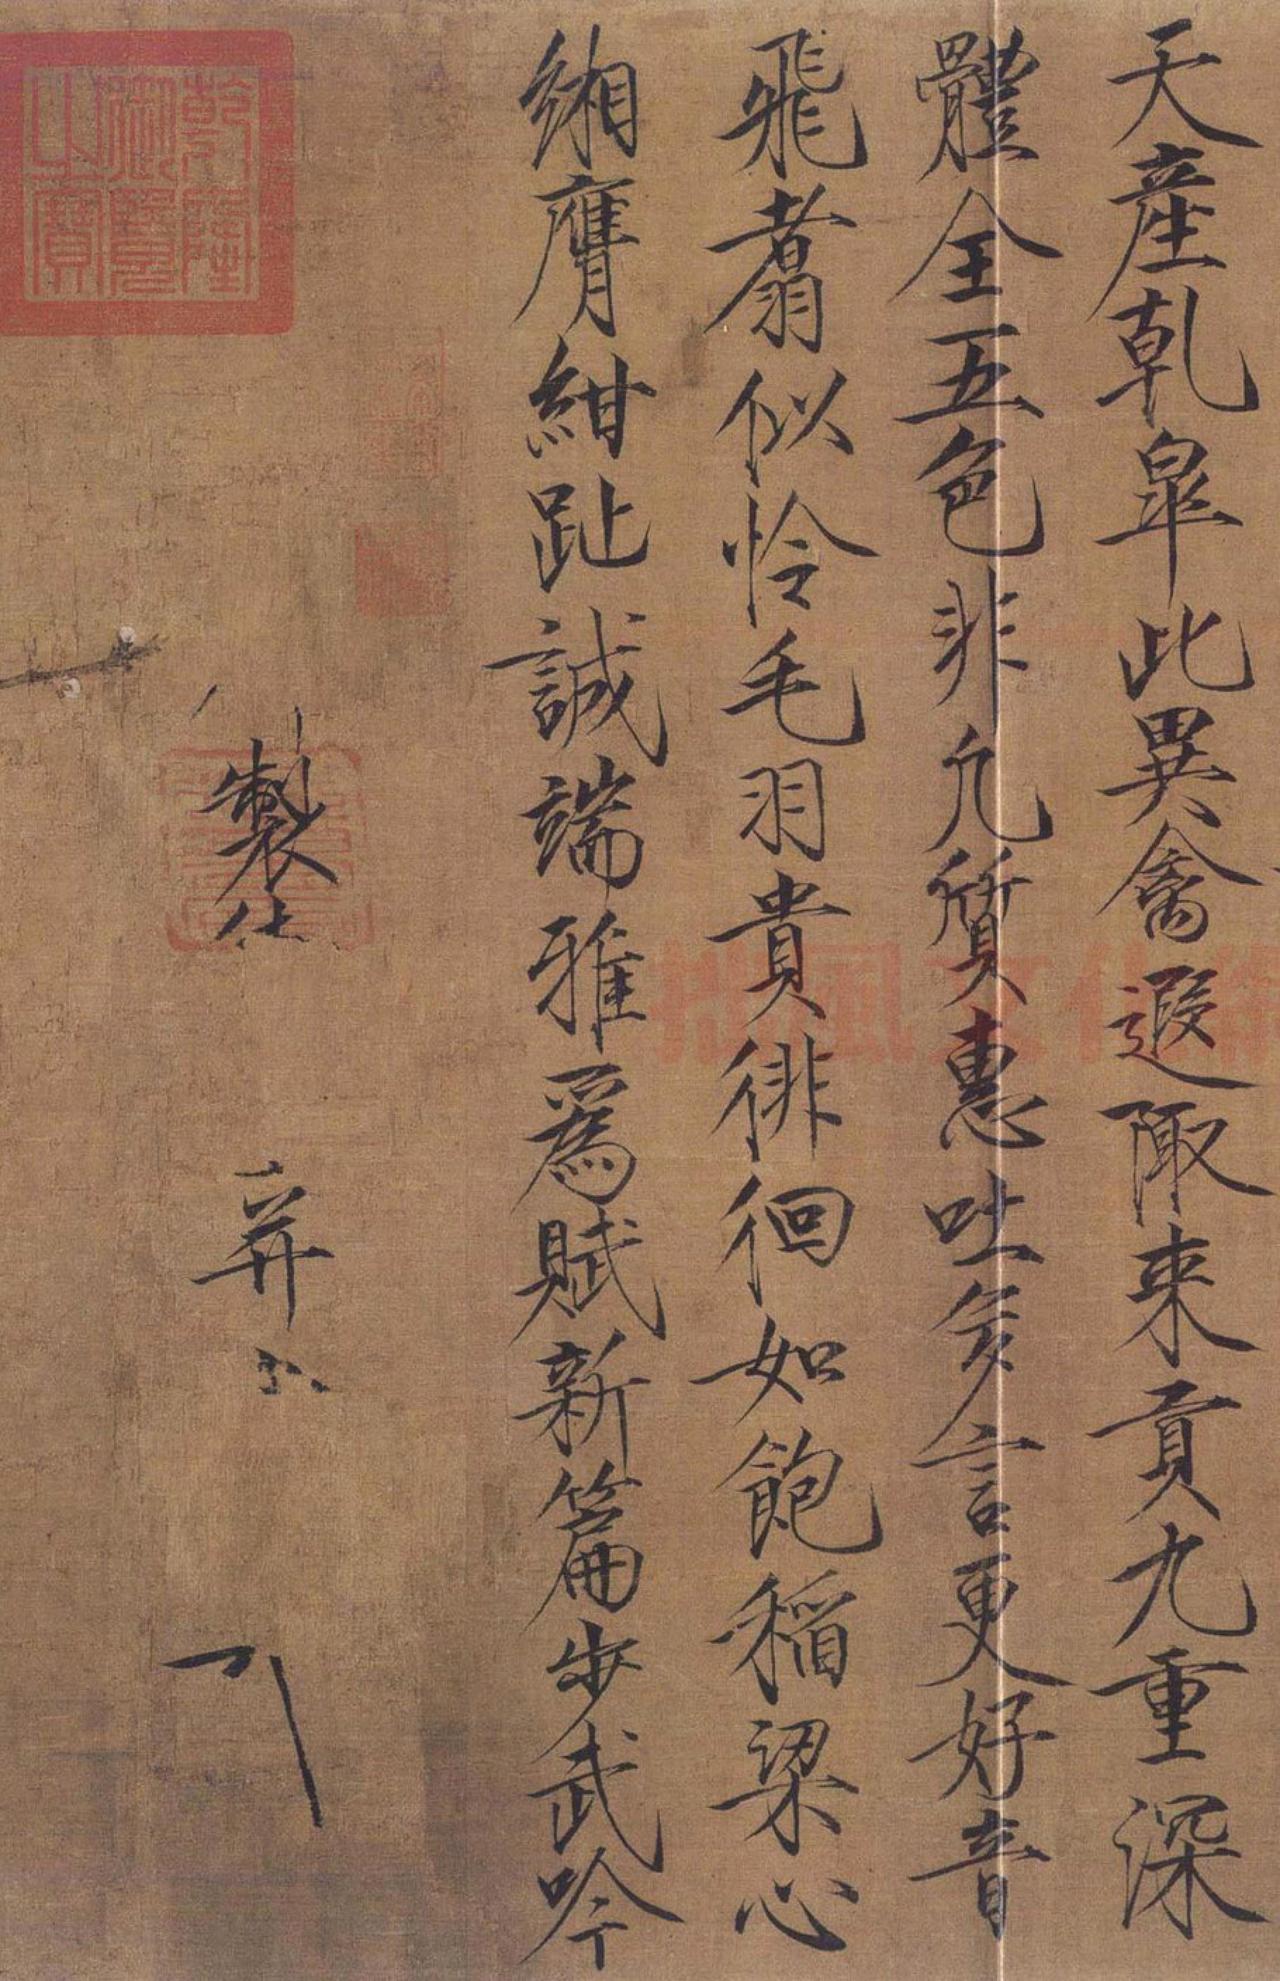 天産乹皐此異禽遐陬来貢九重深
體全五色非凢質惠吐多言更好音
飛翥似怜毛羽貴徘徊如飽稻粱心
緗膺紺趾誠端雅爲賦新篇步武吟
製
并
乾隆御覽之寶
拙風文化網